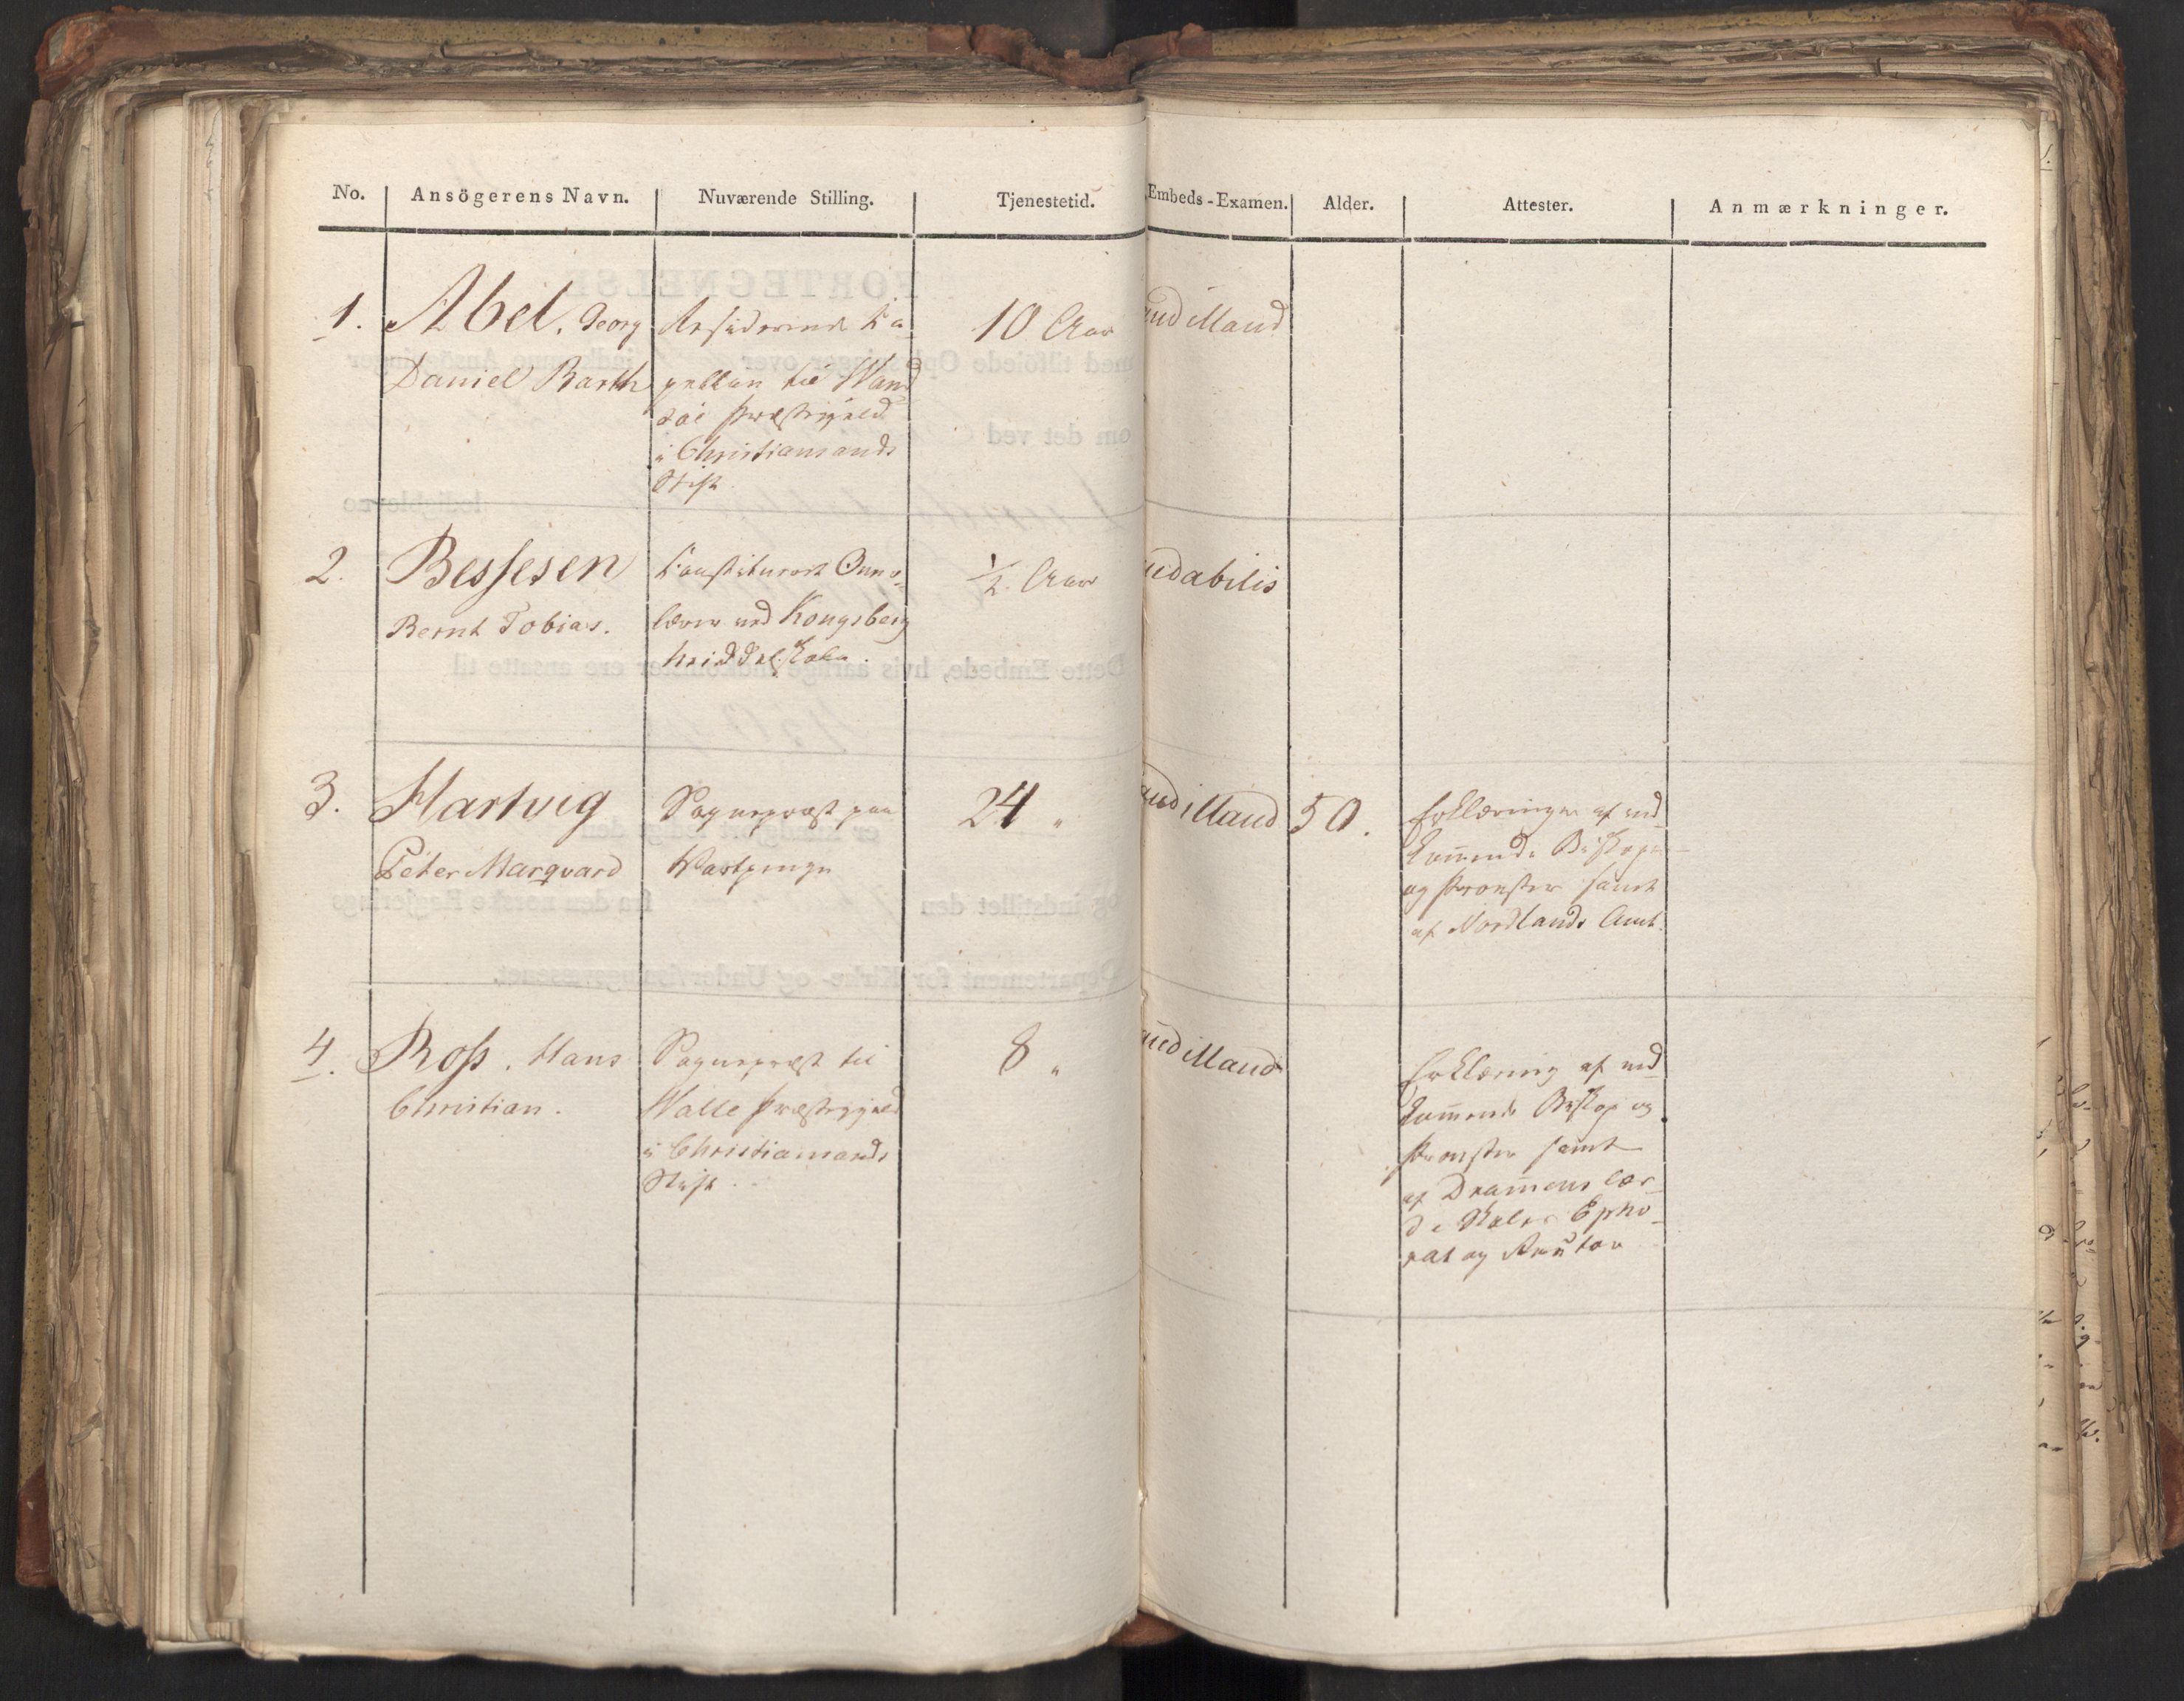 No. Ansögerens Navn. Nuværende Stilling. Tjenestetid. Embeds-Examen. Alder. Attester. Anmærkninger.
1. Abel, Georg
Daniel Barth
Residerende Ca
pellan til
Præstegjeld
i Christiansands
Stift
10 Aar
aud illaud
2. Bessesen
Bernt Tobias.
Constitueret
lærer ved Kongsberg
½ Aar
udabilis
3. Hartvig
Peter Marqvard
Sognepræst paa
24 "
aud illaud
50.
Erklæringer af ved
kom̄ende Biskoper
og Provster samt
af Nordlands Amt.
4. Ross, Hans
Christian.
Sognepræst til
Valle Præstegjeld
i Christiansands
Stift.
8 "
aud illaud
Erklæring af ved
kom̄ende Biskop og
Provster samt
af Dram̄ens lær
de Skoles Epho
rat og Rector